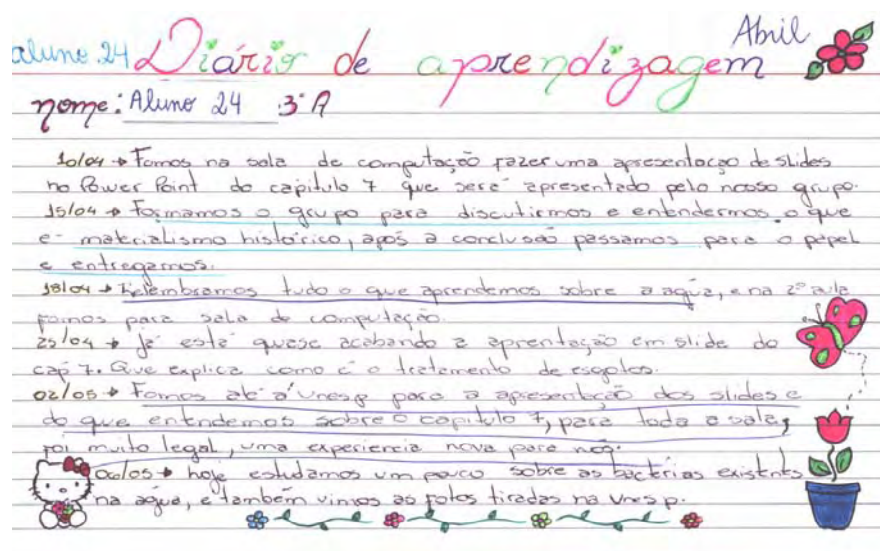 aluno 24 Diário de aprendizagem Abril
nome: Aluno 24 3ºA
10/04 → Fomos na sala de computação fazer uma apresentação de slides
no Power Point do capitulo 7 que será apresentado pelo nosso grupo.
15/04 → Formamos o grupo para discutirmos e entendermos o que
e- materialismo histórico, após a conclusão passamos para o papel
e entregamos.
18/04 → Relembramos tudo o que aprendemos sobre a agua, e na 2º aula
fomos para sala de computação.
25/04 → já está quase acabando a aprentação em slide do
cap 7. Que explica como é o tratamento de esgotos.
02/05 → Fomos até a unesp para a apresentação dos slides e
do que entendemos sobre o capitulo 7, para toda a sala,
foi muito legal, uma experiencia nova para nós.
06/05 → hoje estudamos um pouco sobre as bactérias existentes
na agua, e também vimos as fotos tiradas na Unesp.